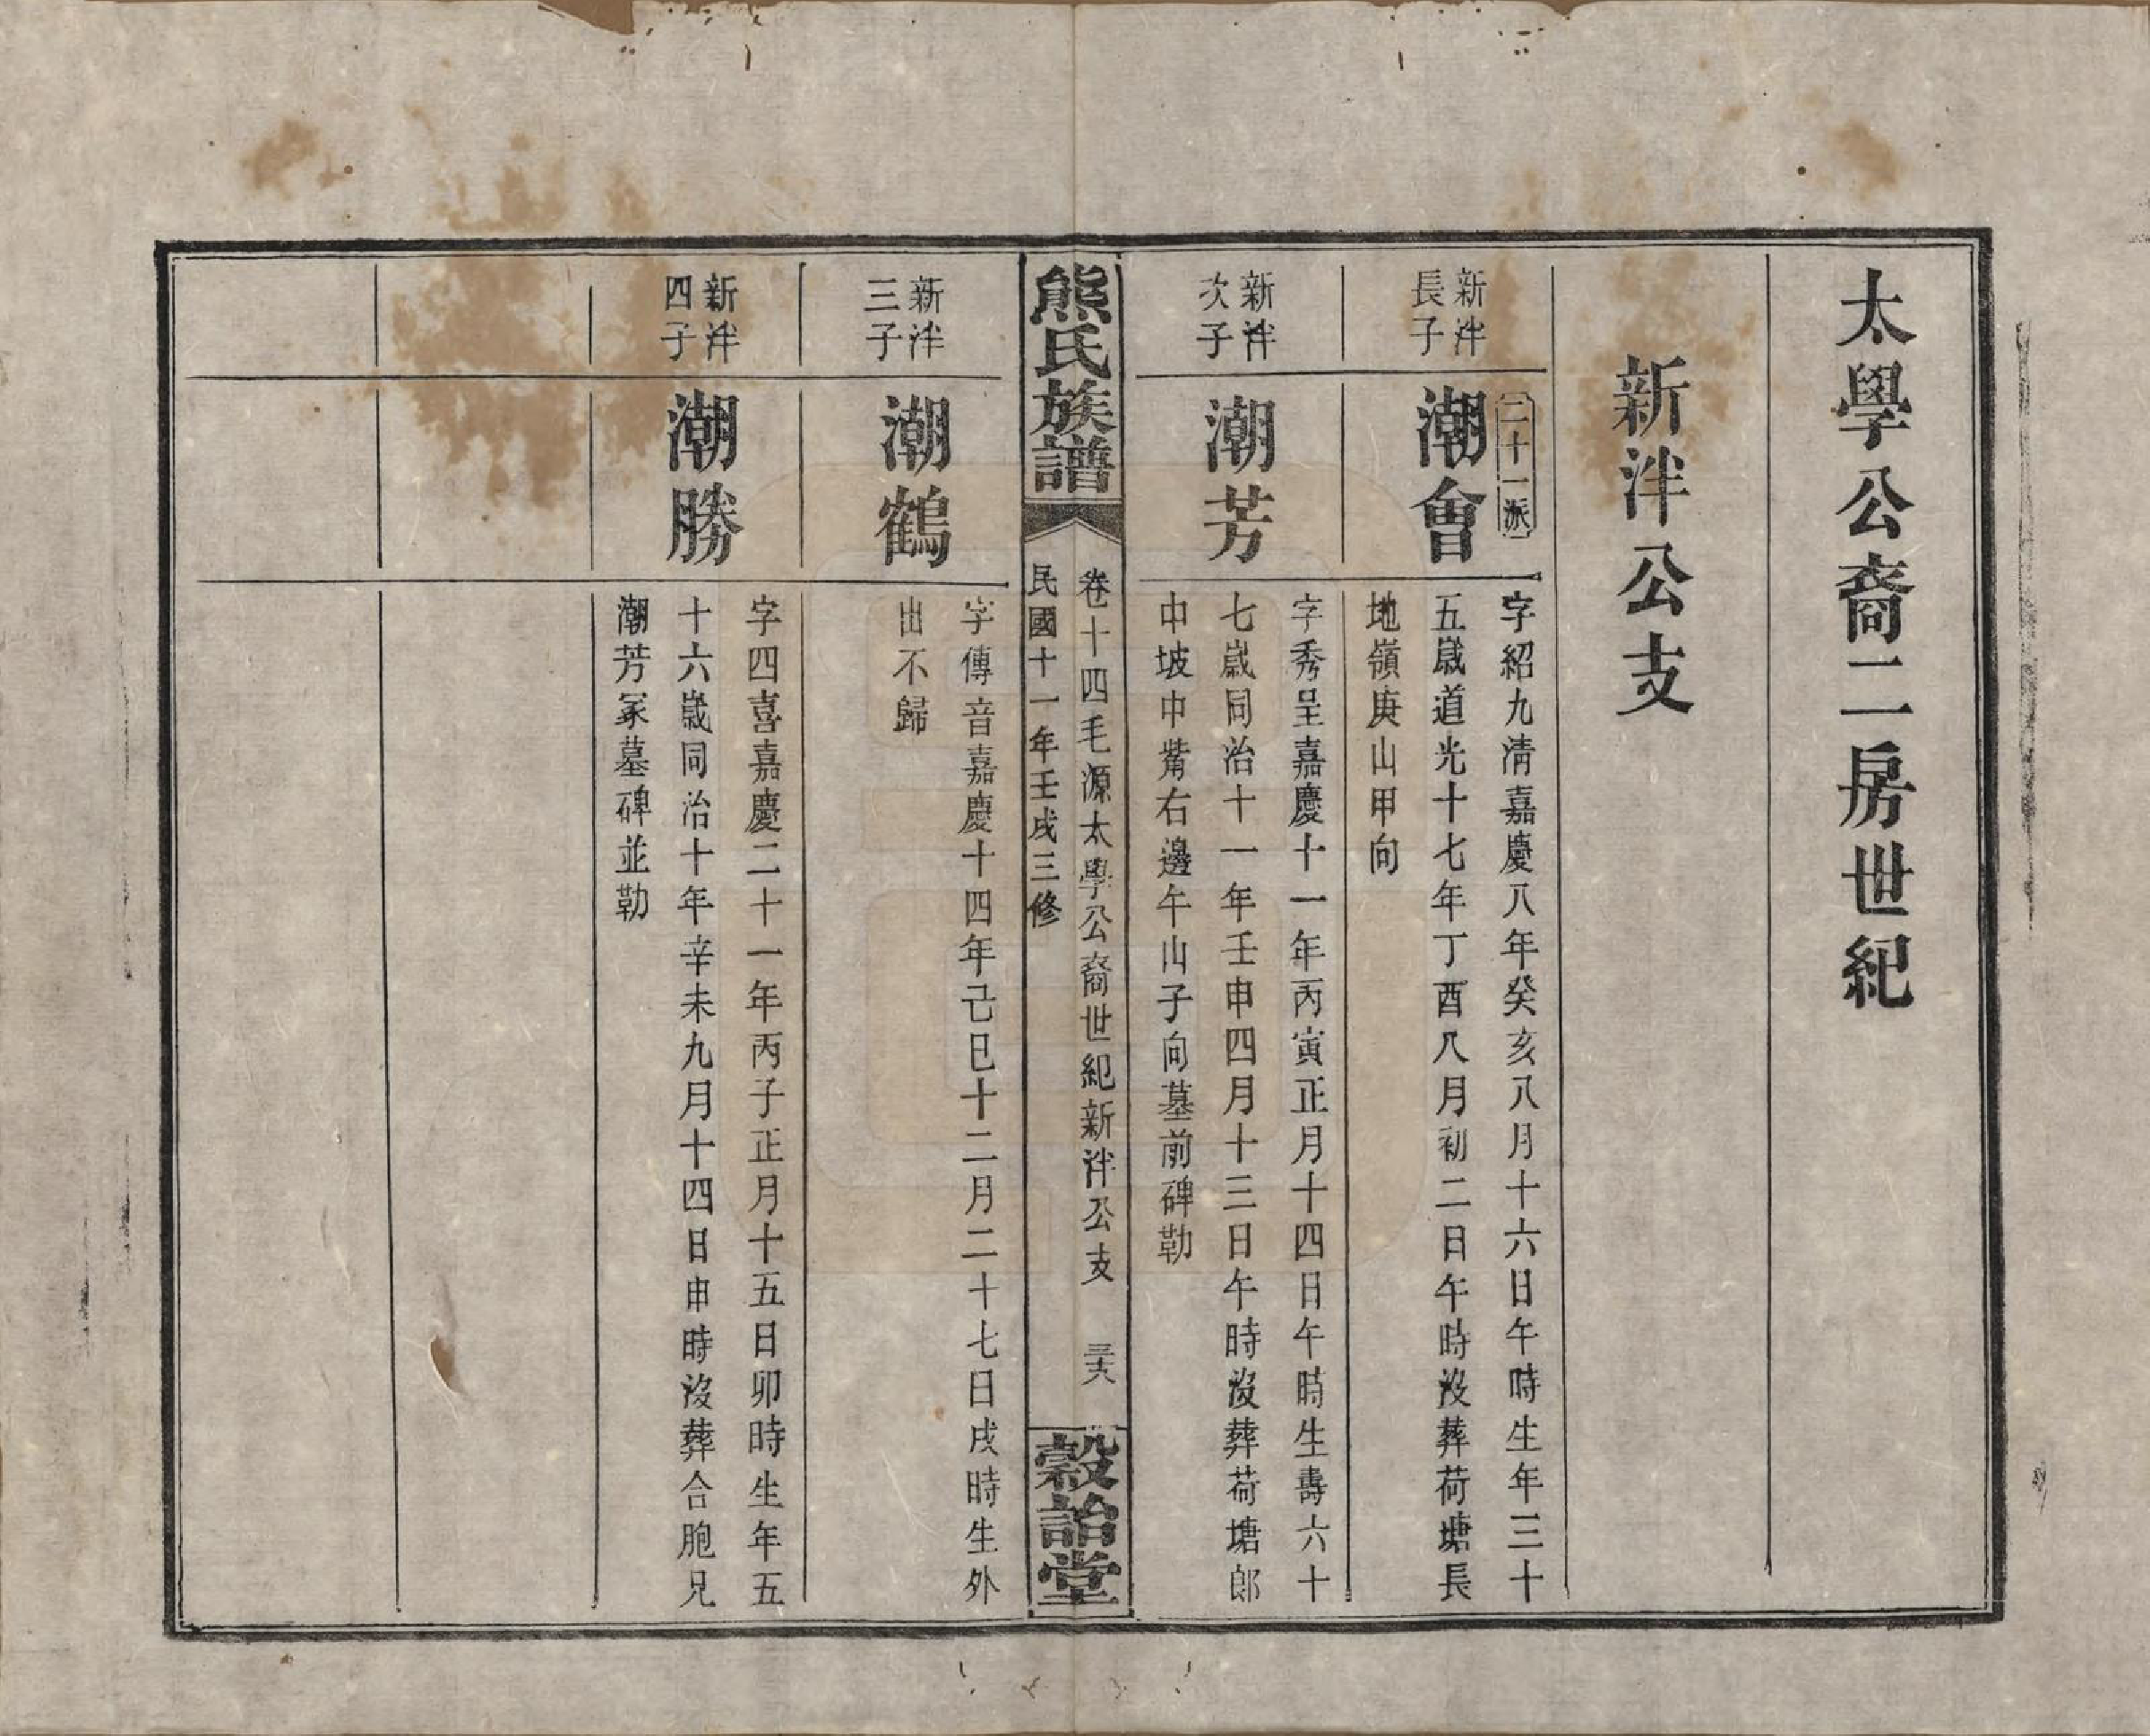 太學公裔二房世紀
新泮公支
二十一派
新泮
長子
潮會
字紹九清嘉慶八年癸亥八月十六日午時生年三十
五歲道光十七年丁酉八月初二日午時沒葬荷塘長
地嶺庚山甲向
新泮
次子
潮芳
字秀呈嘉慶十一年丙寅正月十四日午時生壽六十
七歲同治十一年壬申四月十三日午時沒葬荷塘郎
中坡中觜右邊午山子向墓前碑勒
熊氏族譜
卷十四毛源太學公裔世紀新泮公支
三十六
民國十一年壬戌三修
穀詒堂
新泮
三子
潮鶴
字傳音嘉慶十四年己巳十二月二十七日戌時生外
出不歸
新泮
四子
潮勝
字四喜嘉慶二十一年丙子正月十五日卯時生年五
十六歲同治十年辛未九月十四日申時沒葬合胞兄
潮芳冢墓碑並勒